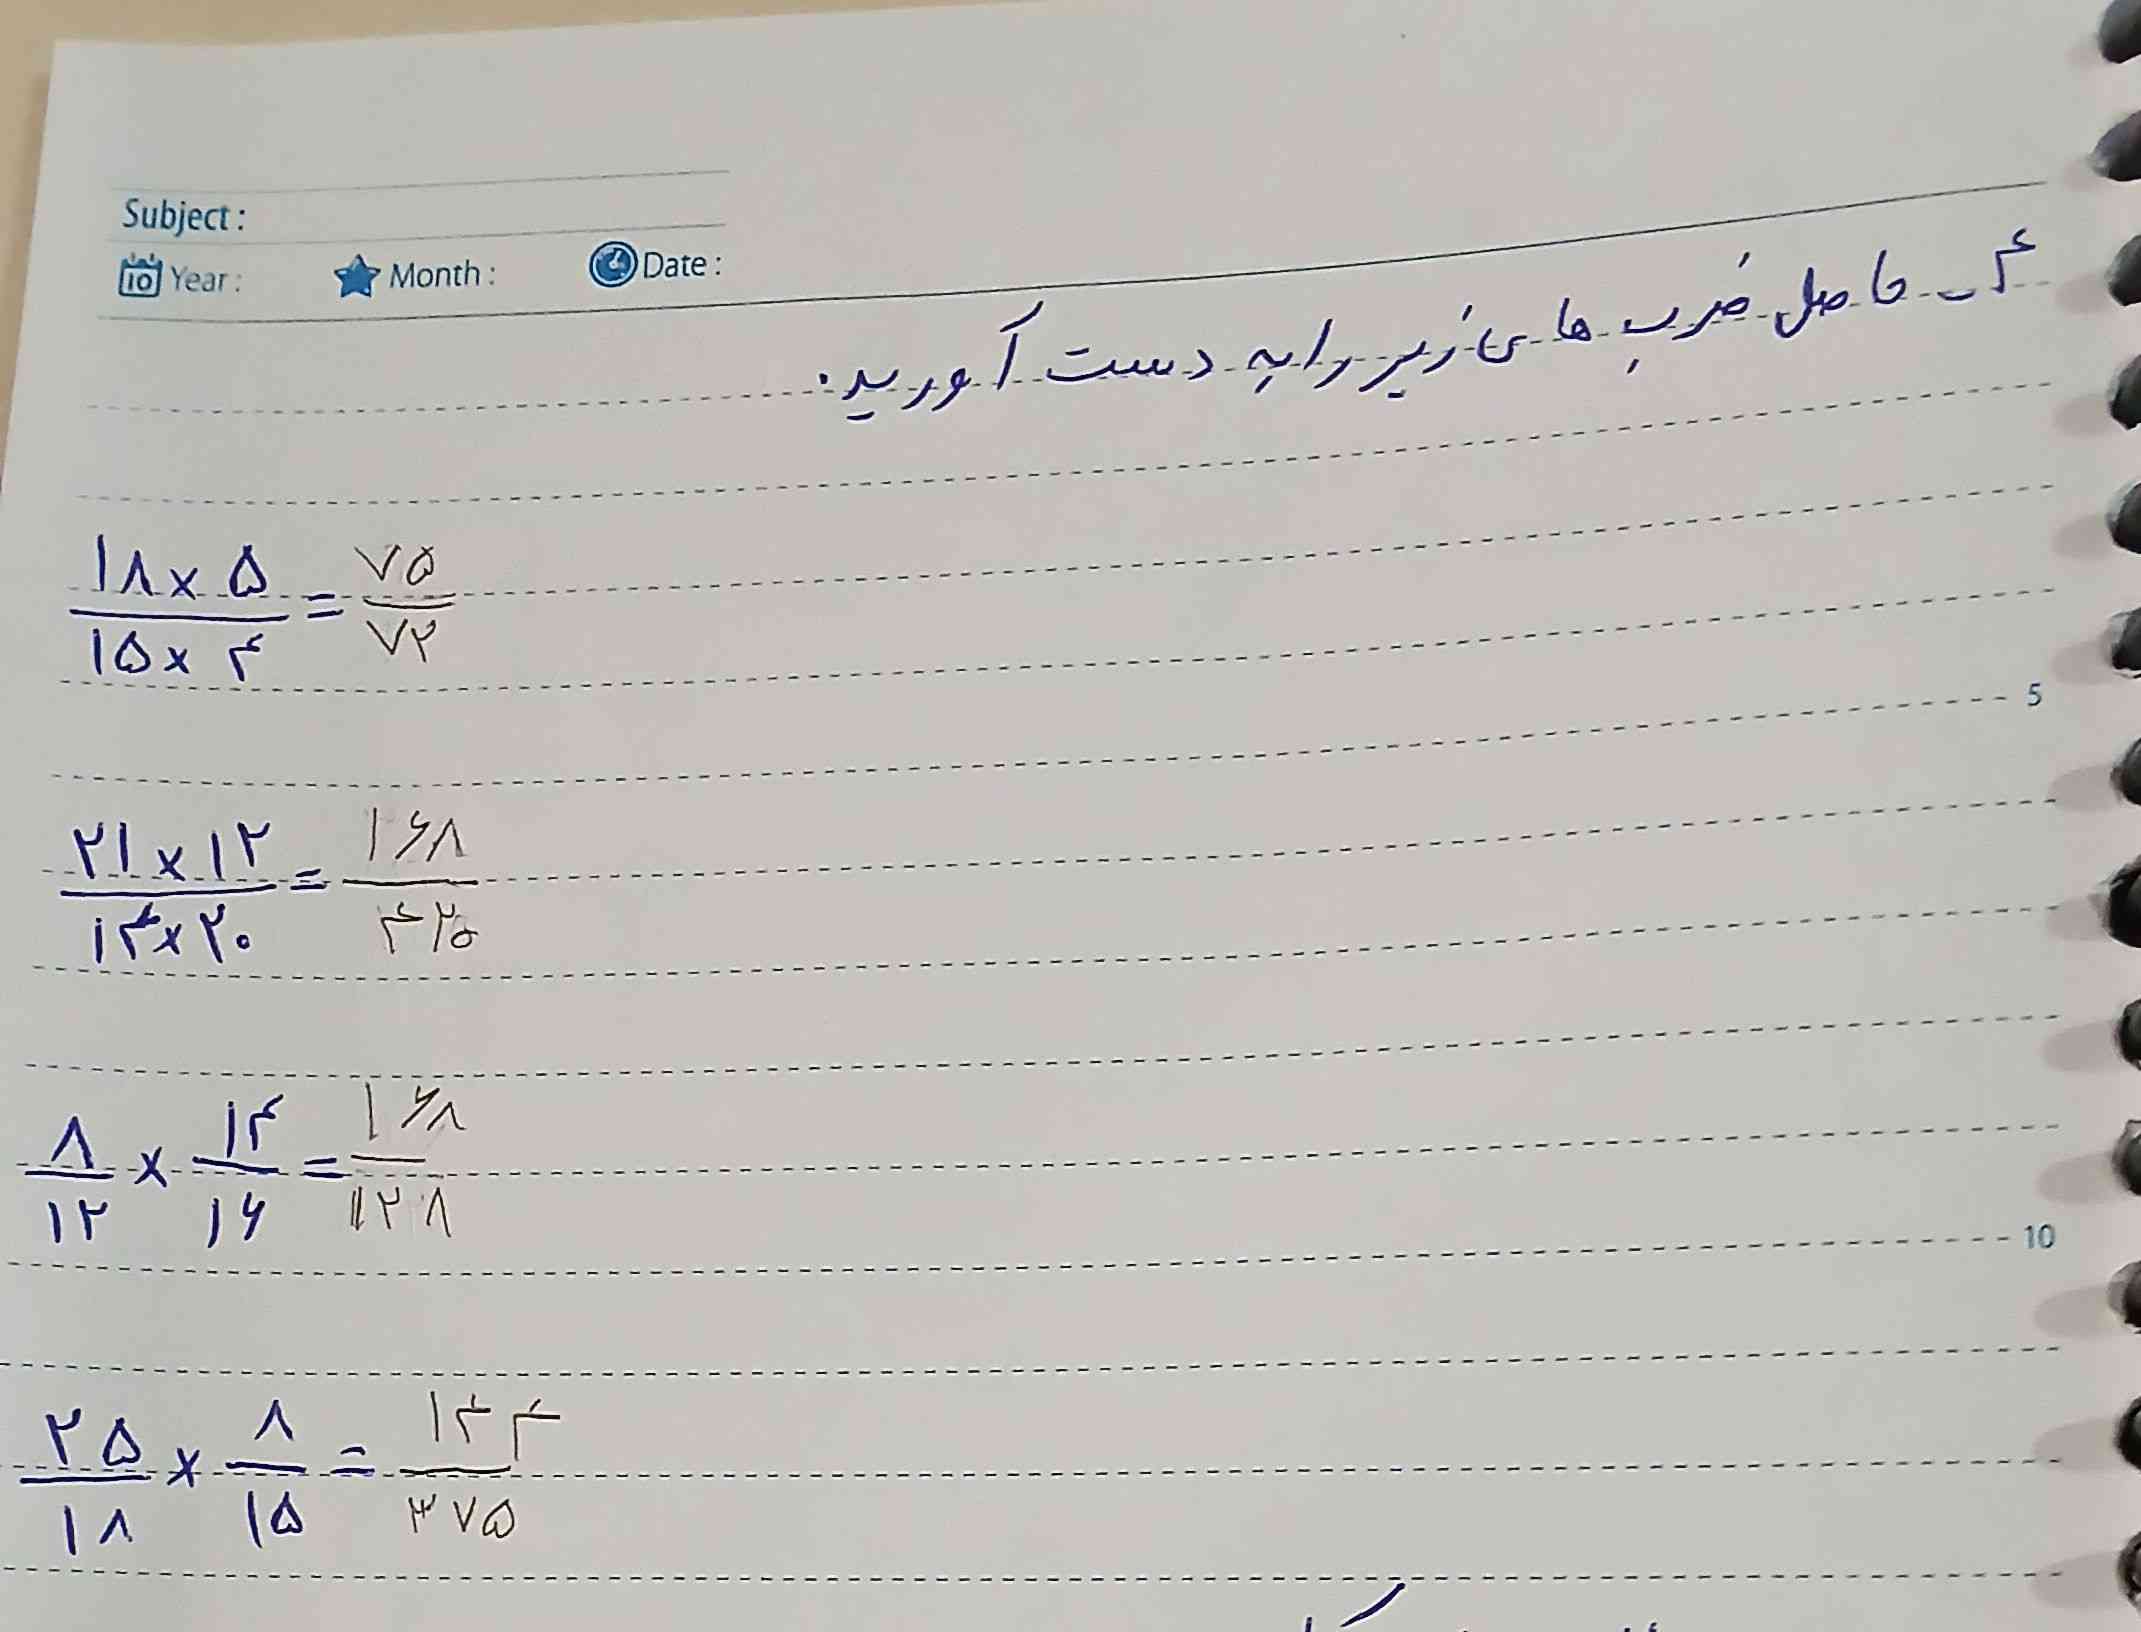 Subject :
Year : Month : Date :
۴- حاصل ضرب های زیر را به دست آورید.
۱۸ × ۵ / ۱۵ × ۴ = ۷۵ / ۷۲
5
۲۱ × ۱۲ / ۱۴ × ۲۰ = ۱۶۸ / ۴۲۵
۸ / ۱۲ × ۱۴ / ۱۶ = ۱۶۸ / ۱۲۸
10
۲۵ / ۱۸ × ۸ / ۱۵ = ۱۴۴ / ۳۷۵